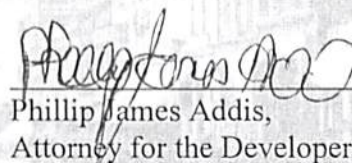 Phillip James Addis,
Attorney for the Developer